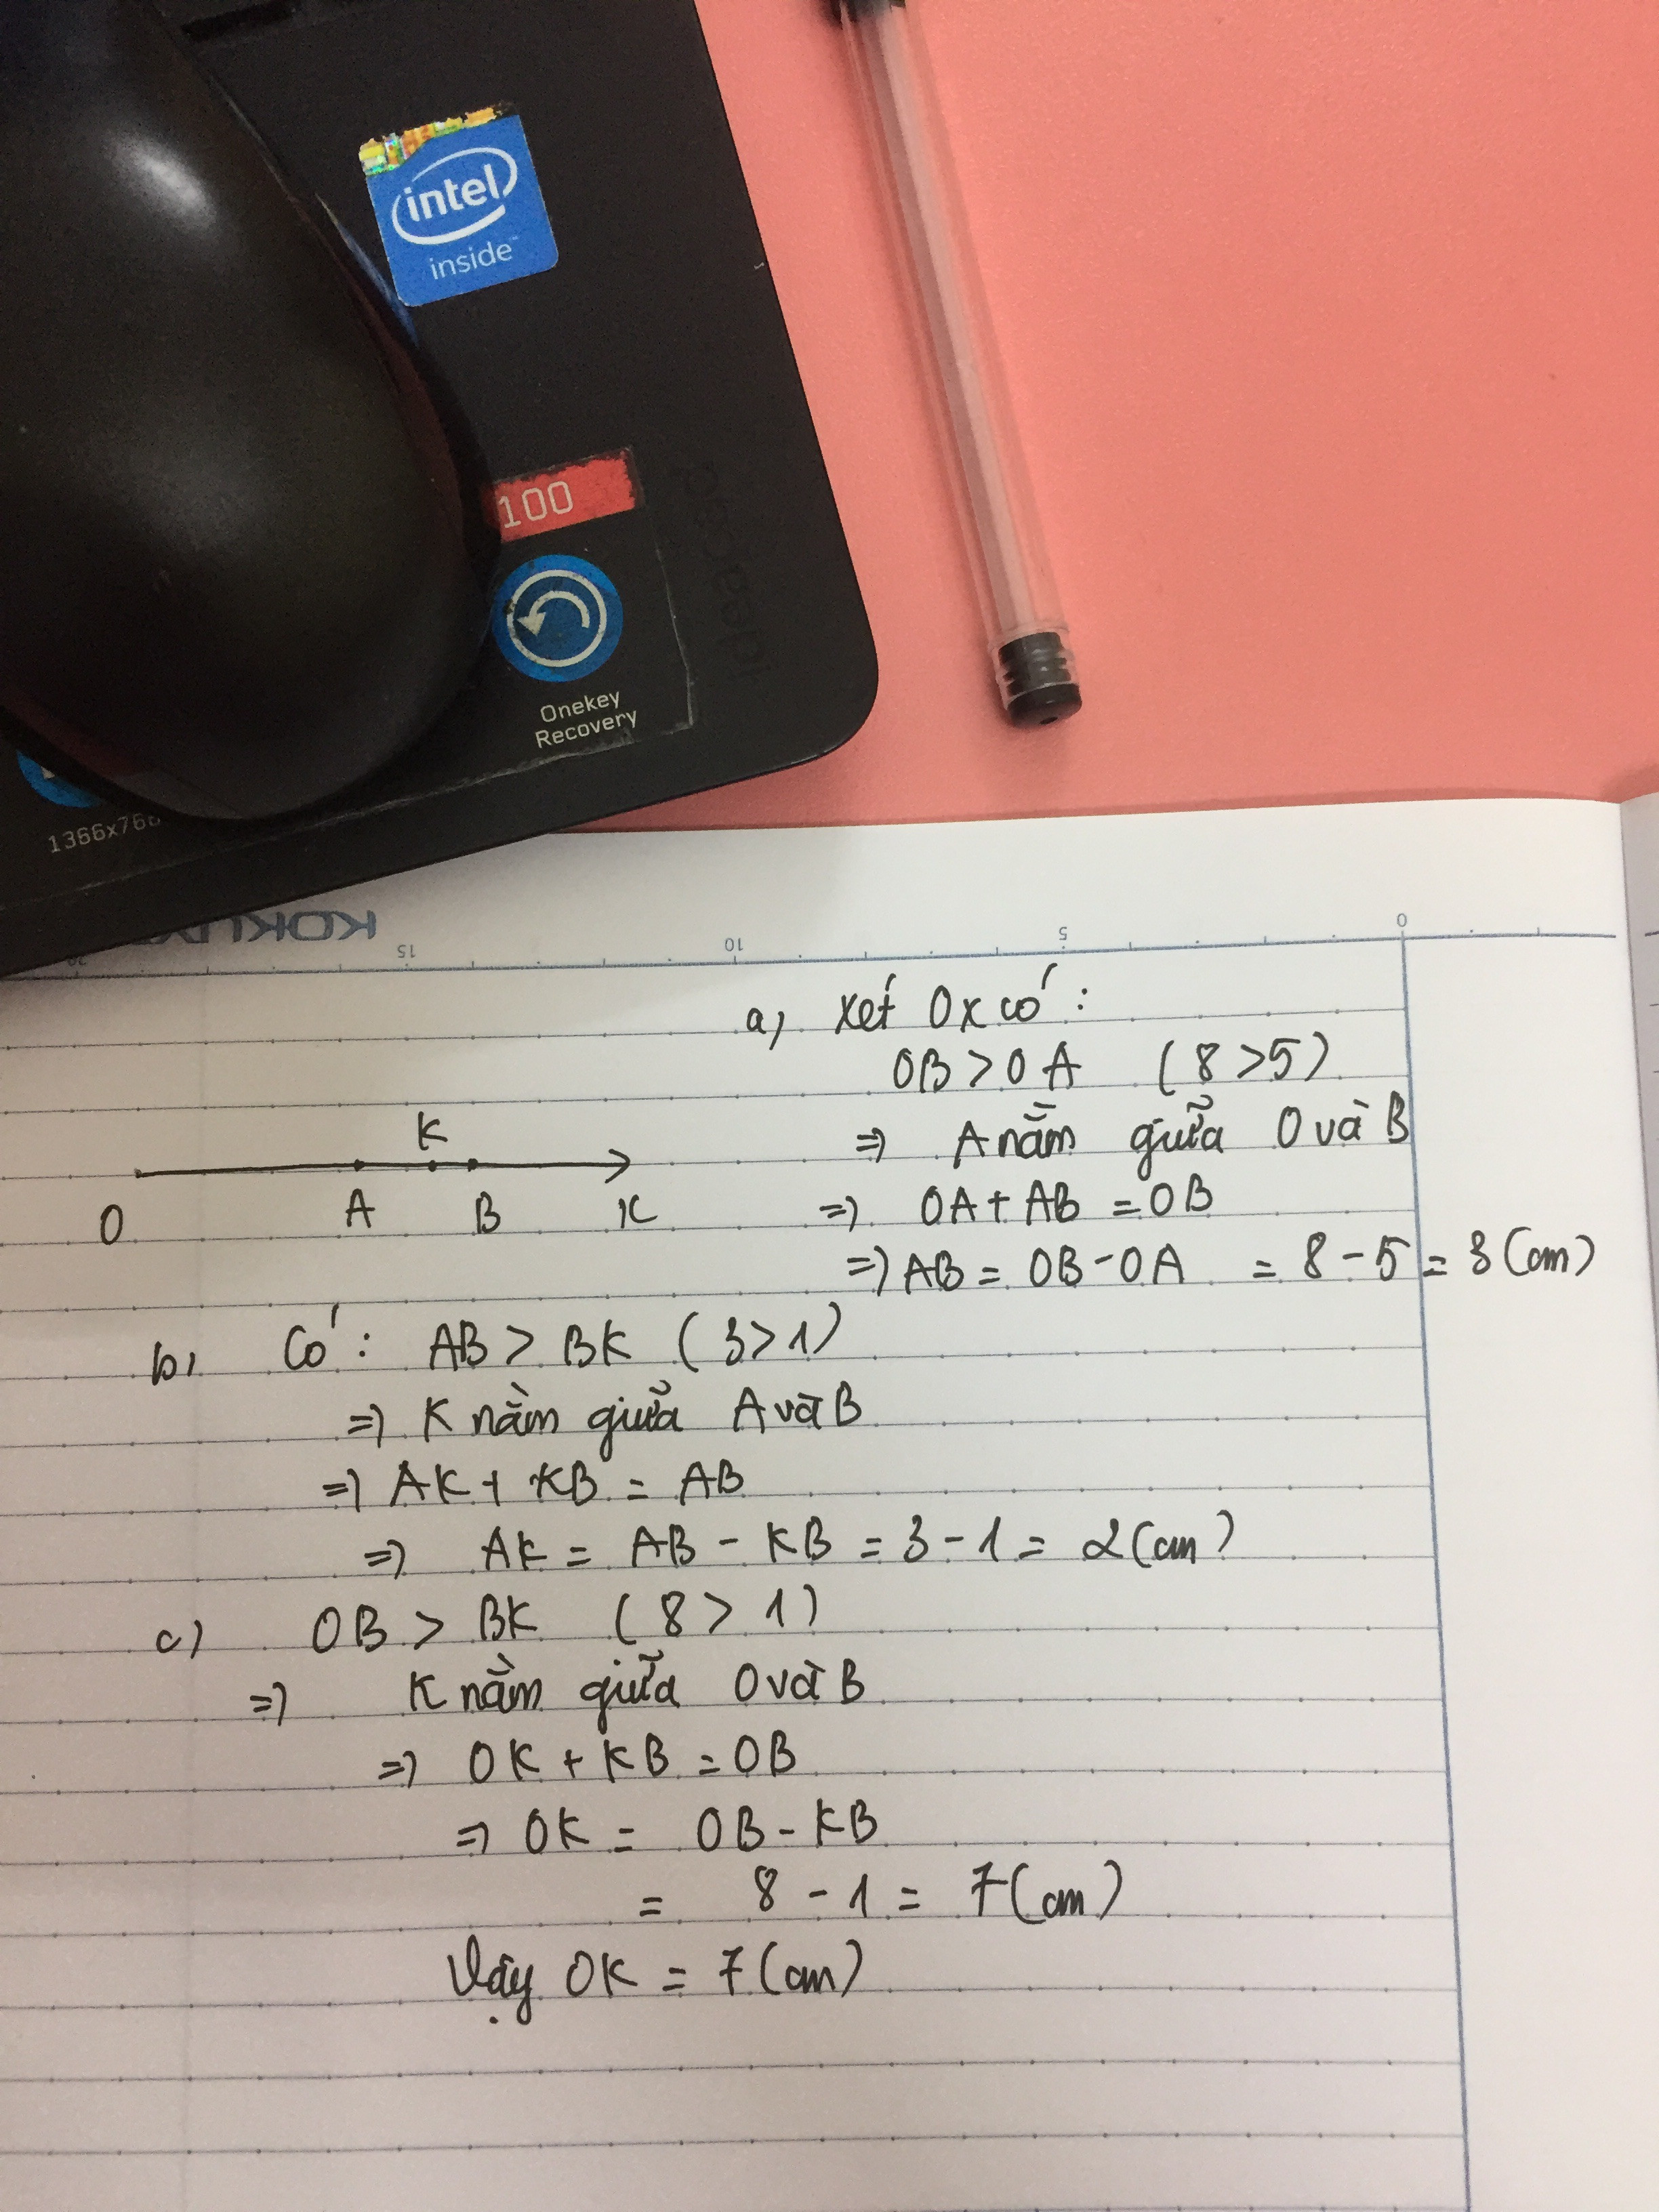 intel
inside™
100
Onekey
Recovery
ideacen
1366x768
KOKUY
0 5 10 15 20
a, Xét Ox có :
OB > OA ( 8 > 5 )
=> A nằm giữa O và B
K
O A B x
=> OA + AB = OB
=> AB = OB - OA = 8 - 5 = 3 (cm)
b, Có : AB > BK ( 3 > 1 )
=> K nằm giữa A và B
=> AK + KB = AB
=> AK = AB - KB = 3 - 1 = 2 (cm)
c) OB > BK ( 8 > 1 )
=> K nằm giữa O và B
=> OK + KB = OB
=> OK = OB - KB
= 8 - 1 = 7 (cm)
Vậy OK = 7 (cm)